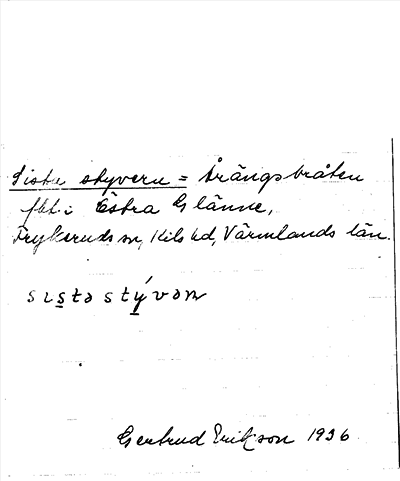 Sista styvern = Årängsbråten
fbt. i Östra Glänne,
Frykeruds sn, Kils hd, Värmlands län.
sista stývən
Gertrud Erikson 1936